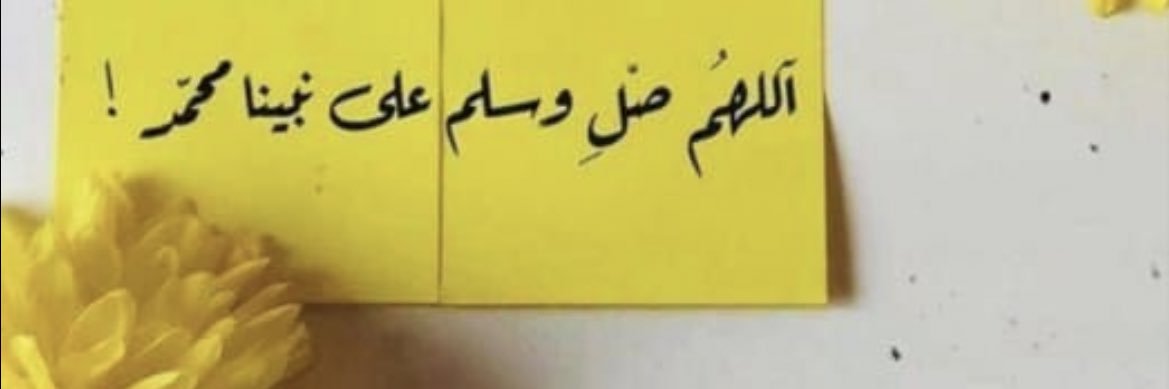 آللهُم صْلِ وسلم على نبينا محمّد !